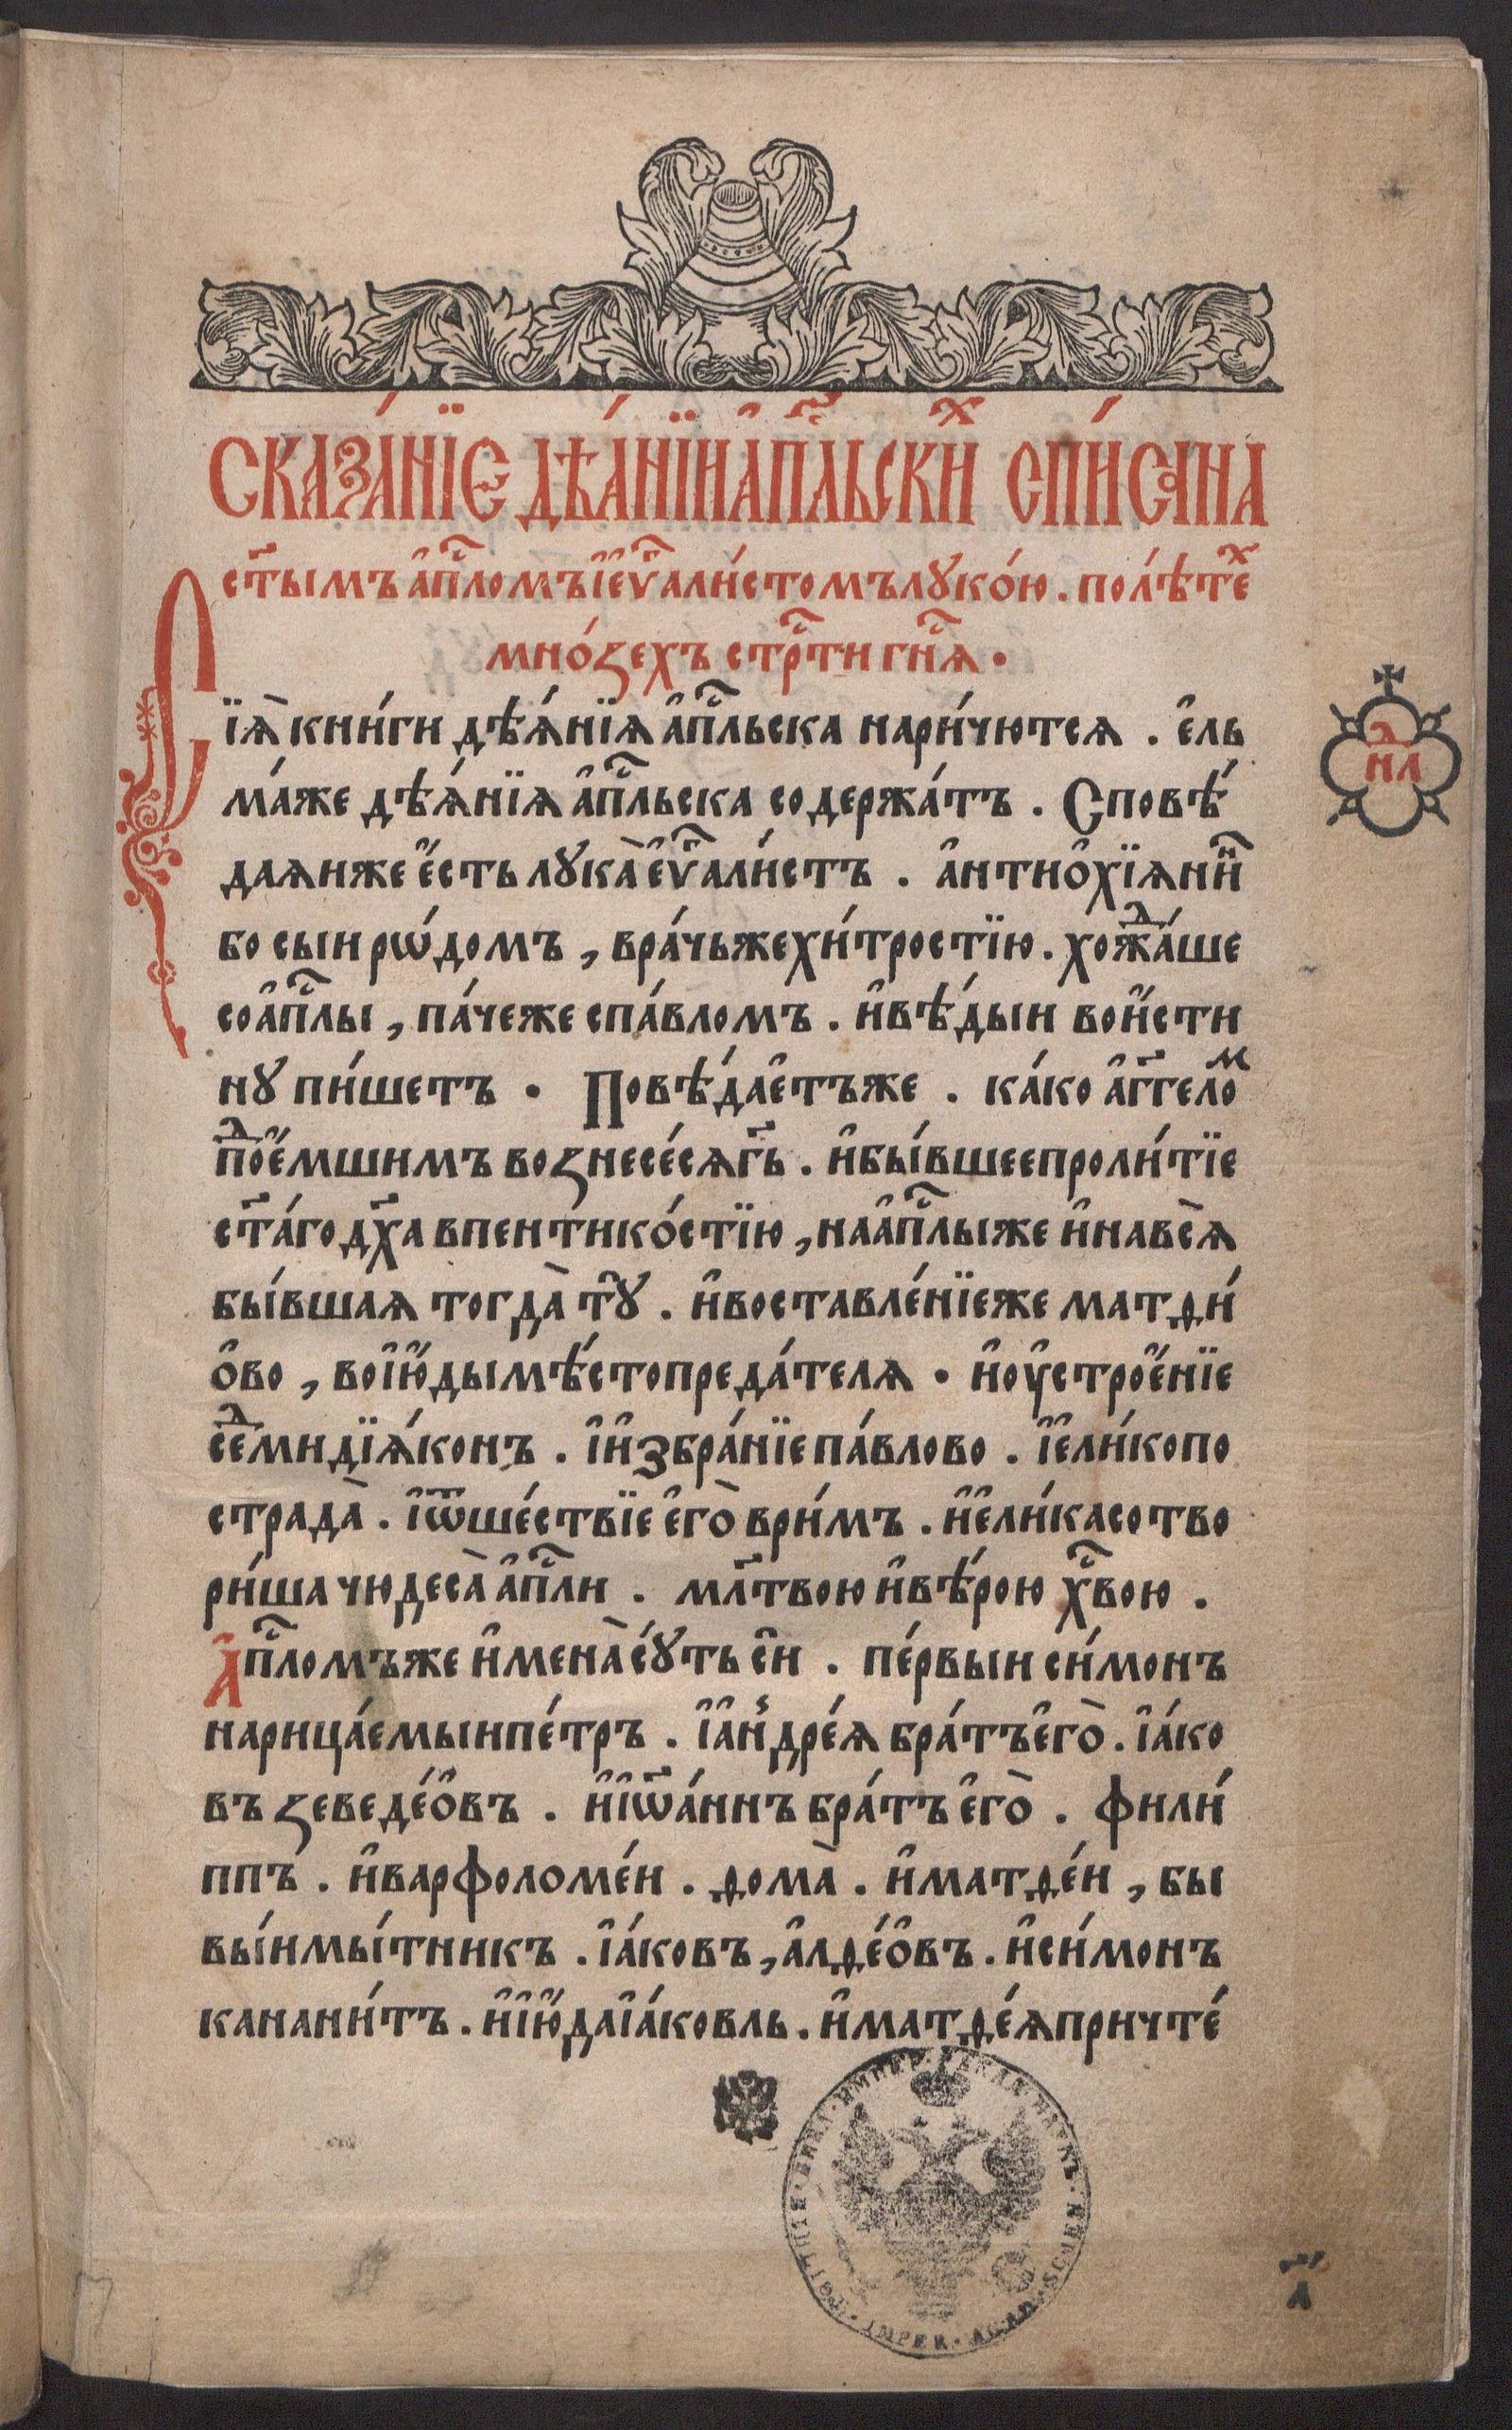 СКАЗА́НЇЕ ДѢА́НЇИ А҆Пⷭ҇ЛЬСКИⷯ СПИ́САНА
ст҃ымъ а҆пⷭ҇ломъ і҆ є҆ѵⷢ҇али́стомъ лꙋко́ю . по лѣ́теⷯ
мно́ꙁехъ стрⷭ҇ти гн҃ѧ .
Сїѧ̀ кни́ги дѣѧ́нїѧ а҆пⷭ҇льска нари́чютсѧ . є҆ль
ма́же дѣѧ́нїѧ а҆пⷭ҇льска содержа́тъ . Сповѣ́
даѧи же є҆́сть лꙋка̀ є҆ѵⷢ҇али́стъ . а҆нтио҆хїѧни҃
бо сыи рѡ́домъ , вра́чь же хи́тростїю . хожⷣа́ше
со а҆пⷭ҇лы , па́че же с па́вломъ . и҆ вѣ́дыи вои́сти
нꙋ пи́шетъ . Повѣ́даетъ же . ка́ко а҆г҃геломⷨ
поⷣе҆́мшимъ воꙁнесе́сѧ гь҃ . и҆ бы́вшее проли́тїе
ст҃а́го дх҃а в пентико́стїю , на а҆пⷭ҇лы же и҆ на всѧ̀
бы́вшаѧ тогда̀ тꙋ̑ . и҆ воставле́нїе же матѳи́
о҆во , в о і҆ю́ды мѣ́сто преда́телѧ . и҆ оу҆строе҆́нїе
сеⷣми дїѧ́конъ . і҆ и҆збра́нїе па́влово . і҆ є҆ли́ко по
страда̀ . і҆ ѿше́ствїе є҆го̀ в ри́мъ . и҆ є҆ли́ка сотво
ри́ша чюдеса̀ а҆пⷭ҇ли . мл҃твою и҆ вѣ́рою хв҃ою .
А҆пⷭ҇ломъ же и҆мена̀ сꙋ́ть сїи . пе́рвыи си́монъ
нарица́емыи пе́тръ . і҆ а҆ндре́ѧ бра́тъ є҆го̀ . і҆а́ко
въ ꙁеведе́о҆въ . и҆ і҆ѡа́ннъ бра́тъ є҆го̀ . фили́
ппъ . и҆ варфоломе́и . ѳома̀ . и҆ матѳе́и , бы
вы́и мы́тникъ . і҆а́ковъ , а҆лѳе́о҆въ . и҆ си́монъ
канани́тъ . и҆ і҆ю́да і҆а́ковль . и҆ матѳе́ѧ причте́